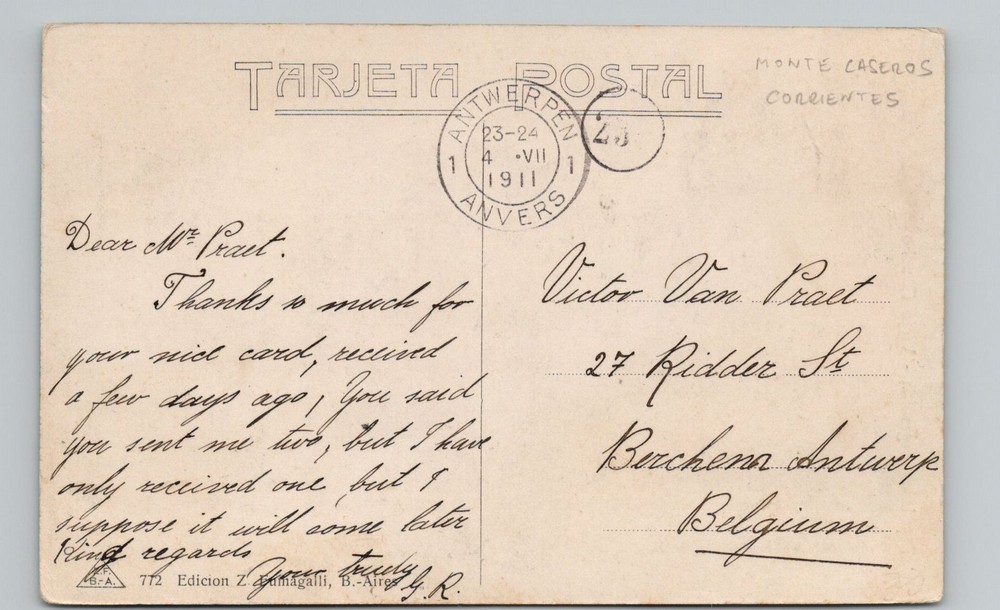 TARJETA POSTAL
MONTE CASEROS
CORRIENTES
ANTWERPEN
23-24
1 4 •VII 1
1911
ANVERS
Dear Mr. Praet.
Thanks so much for
your nice card, received
a few days ago, You said
you sent me two, but I have
only received one but I
suppose it will come later
Kind regards
Yours truly
G. R.
Victor Van Praet
27 Ridder St
Berchem Antwerp
Belgium
B.-A.
772 Edicion Z. Fumagalli, B.-Aires